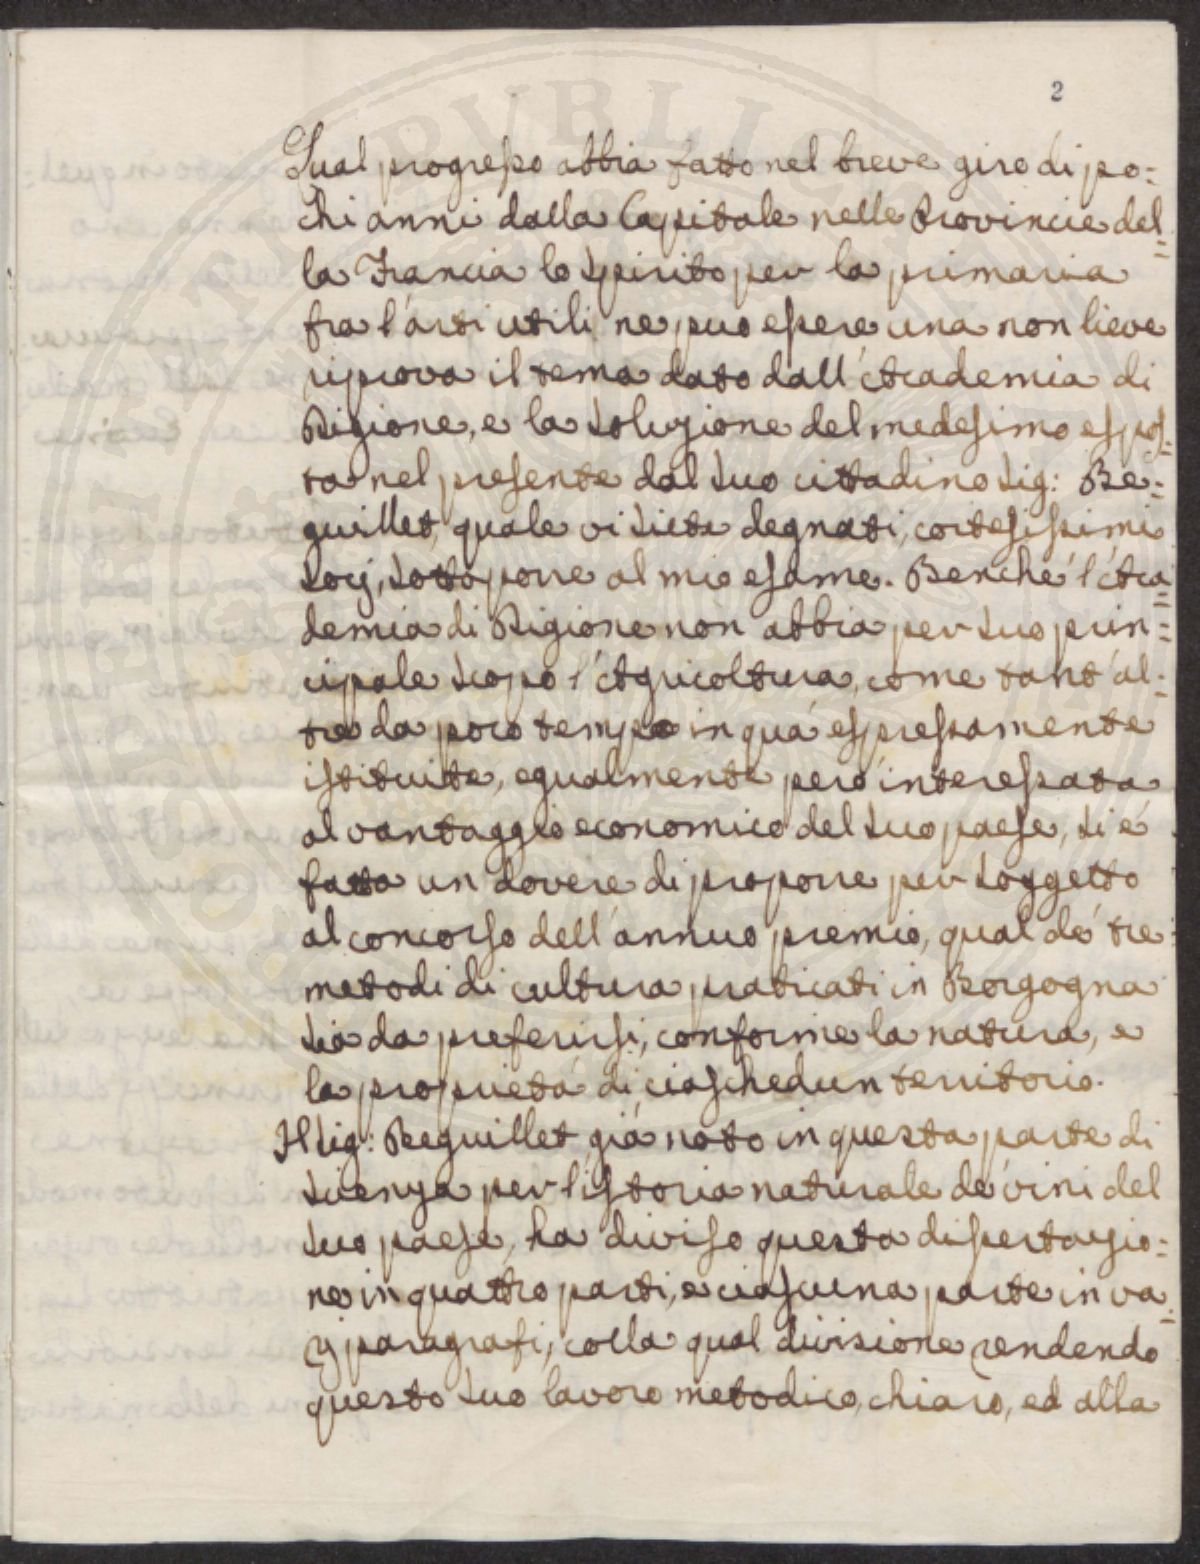 2
Qual progresso abbia fatto nel breve giro di po=
chi anni dalla Capitale nelle Provincie del=
la Francia lo spirito per la primaria
fra l'arti utili ne può essere una non lieve
riprova il tema dato dall'Accademia di
Digione, e la soluzione del medesimo espos=
ta nel presente dal suo cittadino Sig: Be=
guillet, quale vi siete degnati, cortesissimi
Socj, sottoporre al mio esame. Benche l'Acca=
demia di Digione non abbia per suo prin=
cipale scopo l'Agricoltura, come tant'al=
tre da poco tempo in quà espressamente
istituite, egualmente però interessata
al vantaggio economico del suo paese, si è
fatta un dovere di proporre per soggetto
al concorso dell'annuo premio, qual de' tre
metodi di cultura praticati in Borgogna
sia da preferirsi, conforme la natura, e
la proprietà di ciaschedun territorio.
Il Sig: Beguillet già noto in questa parte di
scienza per l'istoria naturale de' vini del
suo paese, ha diviso questa dissertazio=
ne in quattro parti, e ciascuna parte in va=
rj paragrafi, colla qual divisione rendendo
questo suo lavoro metodico, chiaro, ed alla
PUBLICAE